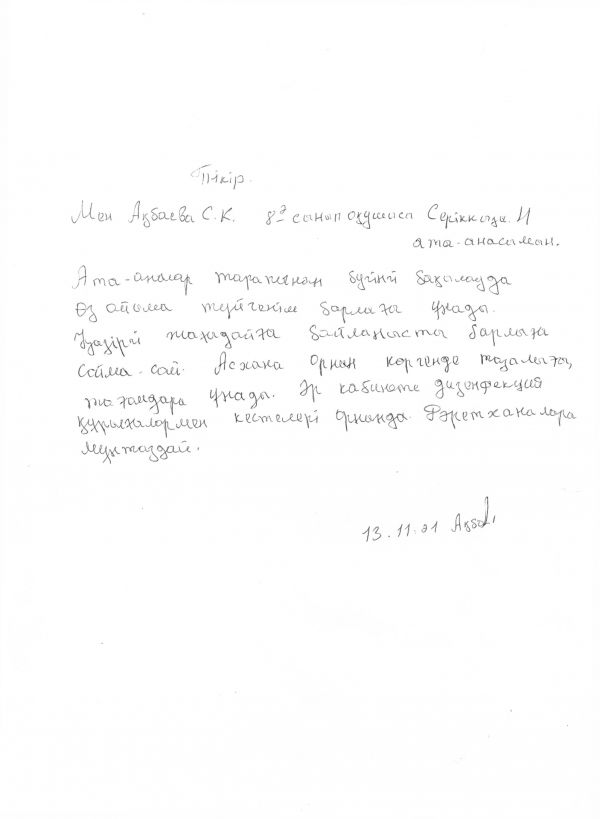 Пікір.
Мен Ақбаева С.К. 8ә сынып оқушысы Серікқызы И
ата-анасымын.
Ата-аналар тарапынан бүгінгі бақылауда
Өз ойыма түйгенім барлығы ұнады.
Қазіргі жағдайға байланысты барлығы
сайма-сай. Асхана орнын көргенде тазалығы,
тағамдары ұнады. Әр кабинете дизенфекция
құрылғылармен кестелері орнында. Дәретханалара
мұнтаздай.
13.11.21